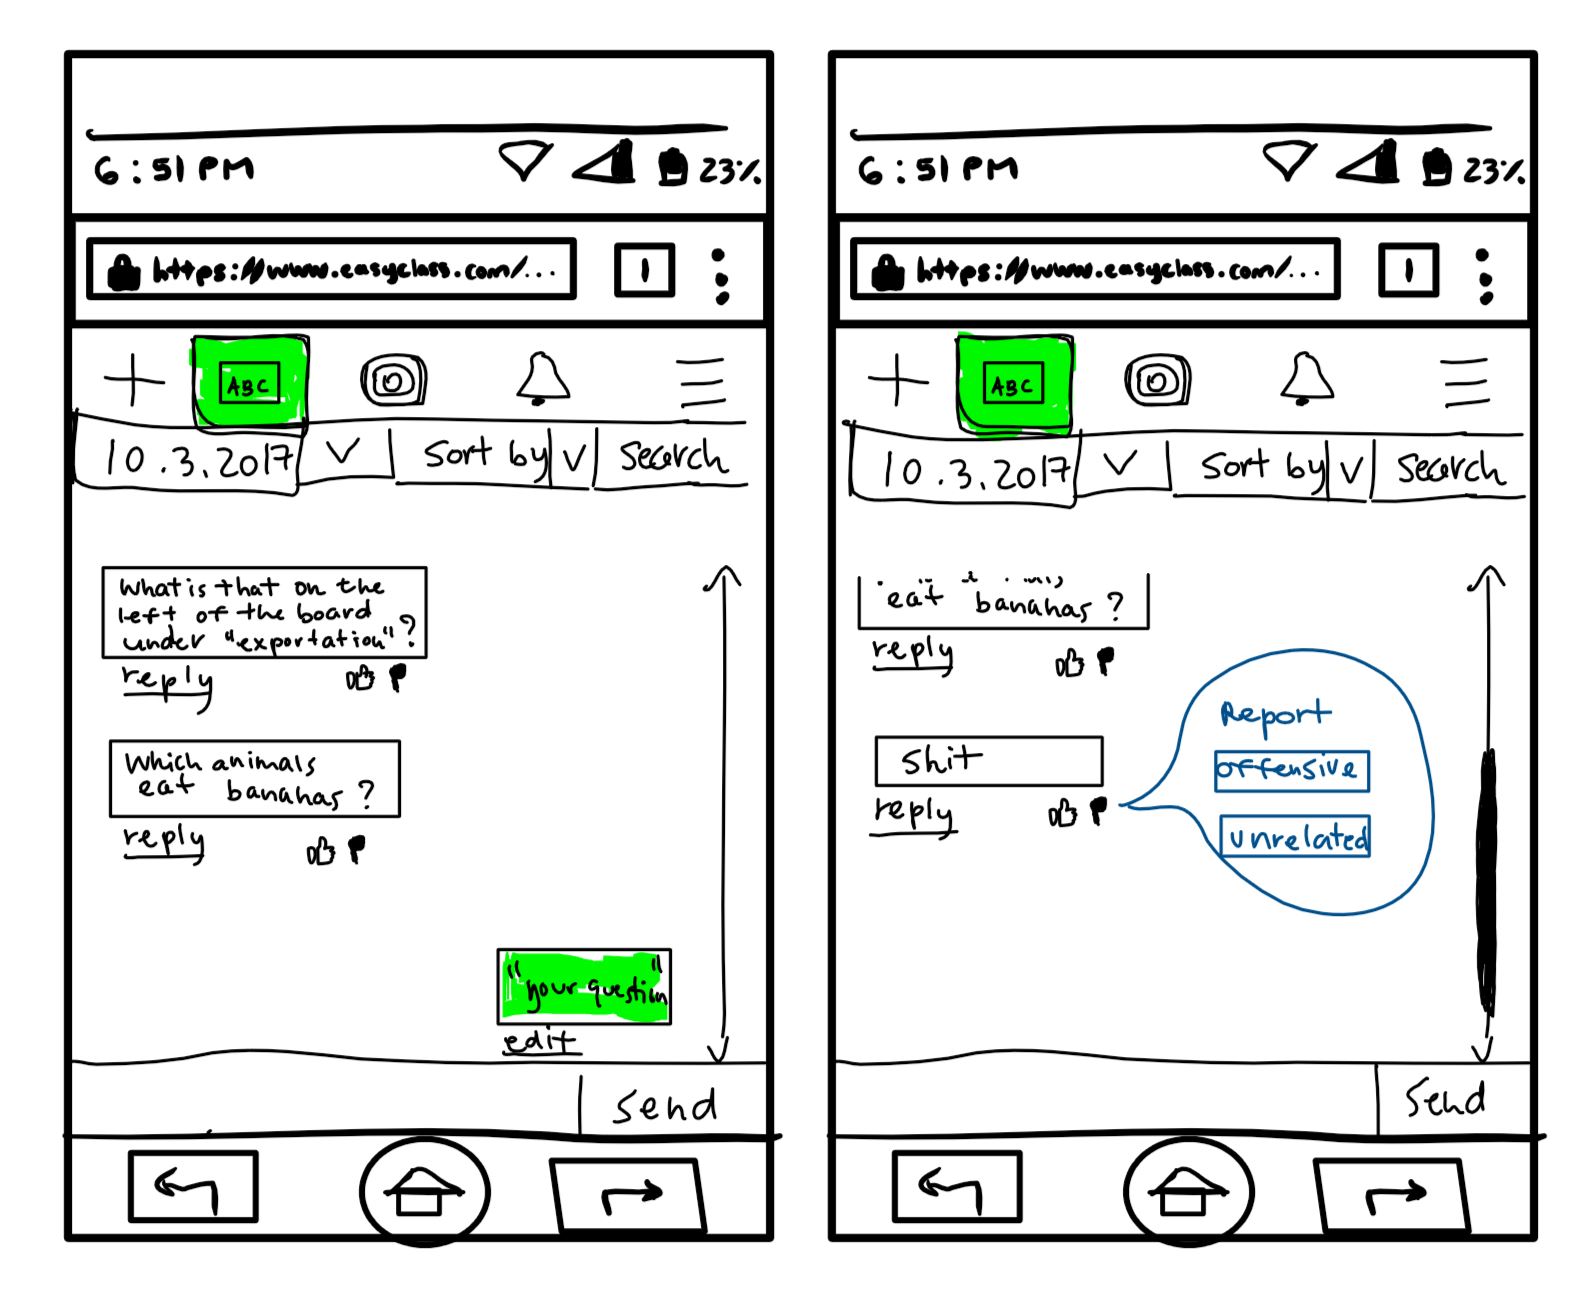 6:51 PM 23%
https://www.easyclass.com/... 1
ABC
10.3.2017 V Sort by V Search
What is that on the
left of the board
under "exportation"?
reply
Which animals
eat bananas?
reply
"your question"
edit
Send
6:51 PM 23%
https://www.easyclass.com/... 1
ABC
10.3.2017 V Sort by V Search
eat bananas?
reply
shit
reply
Report
offensive
unrelated
Send